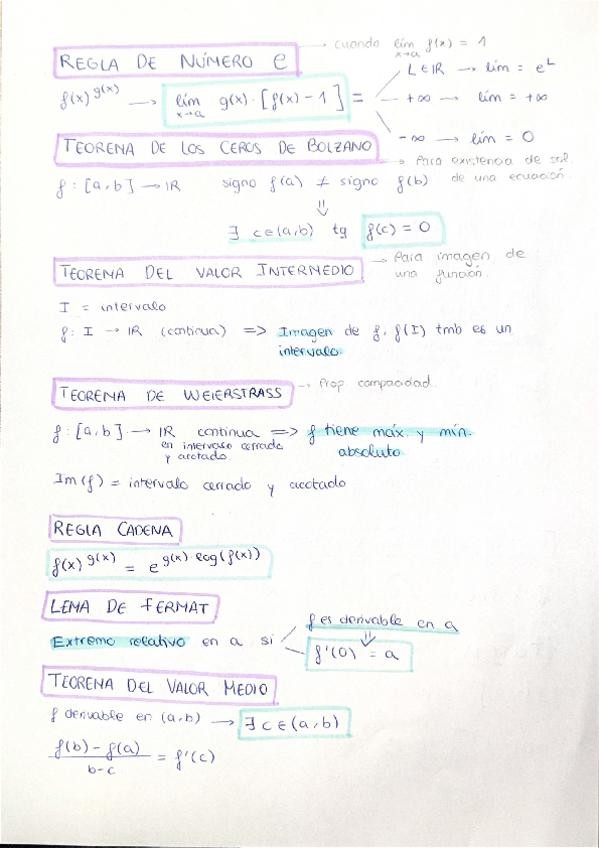 REGLA DE NÚMERO e → cuando lím f(x) = 1
x→a
L ∈ IR → lím = e^L
f(x)^g(x) → lím g(x) · [f(x) - 1] = + ∞ → lím = + ∞
x→a
- ∞ → lím = 0
TEOREMA DE LOS CEROS DE BOLZANO
→ Para existencia de sol.
de una ecuación.
f : [a,b] → IR signo f(a) ≠ signo f(b)
⇓
∃ c ∈ (a,b) tq f(c) = 0
TEOREMA DEL VALOR INTERMEDIO → Para imagen de
una función.
I = intervalo
f: I → IR (continua) => Imagen de f, f(I) tmb es un
intervalo.
TEOREMA DE WEIERSTRASS → Prop. compacidad.
f : [a,b] → IR continua => f tiene máx. y mín.
en intervalo cerrado
y acotado
absoluto.
Im(f) = intervalo cerrado y acotado
REGLA CADENA
f(x)^g(x) = e^g(x)·log(f(x))
LEMA DE FERMAT
f es derivable en a
Extremo relativo en a si ⇓
f'(0) = a
TEOREMA DEL VALOR MEDIO
f derivable en (a,b) → ∃ c ∈ (a,b)
f(b) - f(a)
= f'(c)
b-c